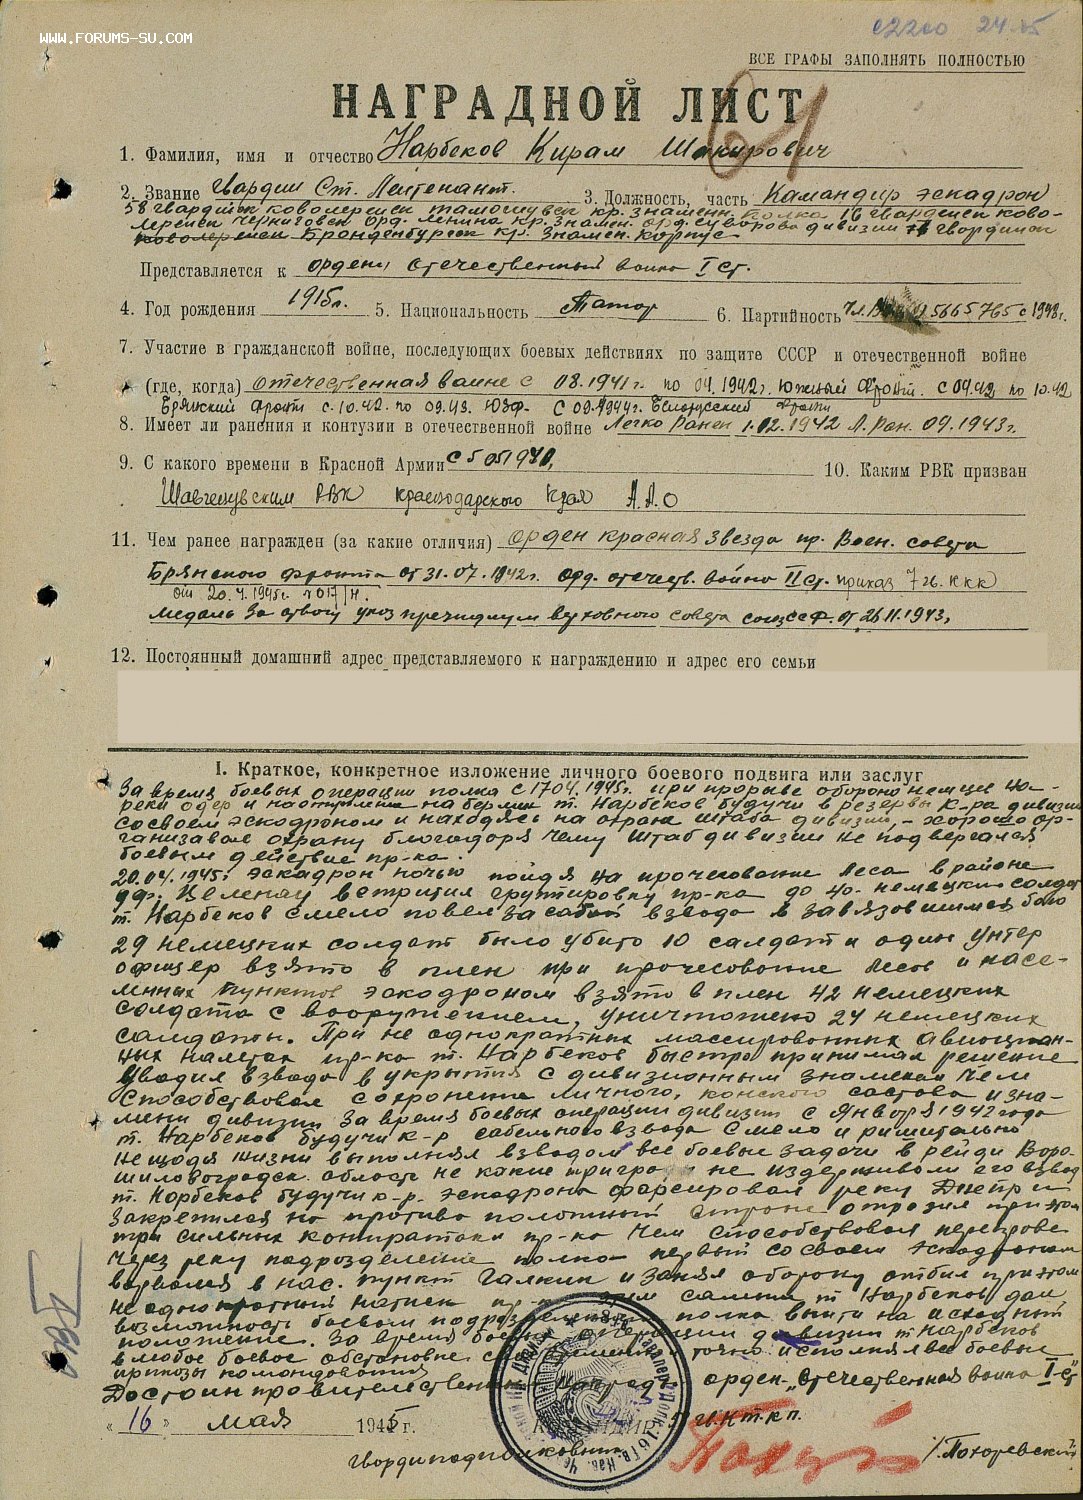 www.forums-su.com
24.05
ВСЕ ГРАФЫ ЗАПОЛНЯТЬ ПОЛНОСТЬЮ
НАГРАДНОЙ ЛИСТ
1. Фамилия, имя и отчество Нарбеков Кирам Шакирович
2. Звание Гвардии Ст. Лейтенант. 3. Должность, часть Камандир эскадрон
58 гвардийск коволерийск кр. знаменн. полка 16 гвардейск ково-
лерийск Черниговск орд. Ленина кр. Знамен. орд. Суворова дивизии 7 гвардийск
коволерийск Бранденбургск кр. Знамен. корпус
Представляется к ордену отечественный войно I ст.
4. Год рождения 1915г. 5. Национальность Татор 6. Партийность 5665765 с 1943г.
7. Участие в гражданской войне, последующих боевых действиях по защите СССР и отечественной войне
(где, когда) отечественная войне с 08.1941г. по 04.1942г. Южный фронт. с 04.42 по 10.42
Брянский фронт с 10.42. по 09.43. ЮЗФ. с 09.1944г. Белорусский фронт
8. Имеет ли ранения и контузии в отечественной войне Легко ранен 1.02.1942 Л. ран. 09.1943г.
9. С какого времени в Красной Армии 10. Каким РВК призван
РВК краснодарского края А.А.О
11. Чем ранее награжден (за какие отличия) орден красная звезда пр. Воен. совета
Брянского фронта от 31.07.1942г. орд. отечеств. войно II ст. приказ 7 гв. ккк
от 20.4.1945г. № 017/н.
медаль за отвогу указ президиум верховного совета союз ССР. от 1943г
12. Постоянный домашний адрес представляемого к награждению и адрес его семьи
I. Краткое, конкретное изложение личного боевого подвига или заслуг
За время боевых операции полка с 17.04.1945г. при прорыве обороно немцев на
реки одер и наступление на берлин т. Нарбеков будучи в резерве к-ра дивизии
со своем эскодроном и находясь на охране штаба дивизии, - хорошо ор-
ганизавал охрану благодоря чему Штаб дивизии не подвергался
боевым действие пр-ка.
20.04.1945г. эскадрон ночью пойдя на прочесование леса в районе
встретил групировку пр-ка до 40. немецких солдат
т. Нарбеков смело повел за собой взвода и завязовшимся бою
29 немецких солдат было убито 10 салдат и один унтер
офицер взято в плен при прочесование лесов и насе-
ленных пунктов эскодроном взято в плен 42 немецких
солдата с вооружением, уничтожено 24 немецких
салдаты. При не однократных массированных авиоцион-
ных налетах пр-ка т. Нарбеков быстро принимал решение
уводил взвода в укрытия с дивизионным знаменам чем
способствовал сохронение личного, конского состова и зна-
мени дивизии за время боевых операции дивизии с Января 1942 года
т. Нарбеков будучи к-р сабельного взвода смело и ришительно
не щодя жизни выполнял взводом все боевые задачи в рейди Воро-
шиловогродск. область не какие приград не издерживали его взвод
т. Нарбеков будучи к-р. эскадрона форсировал реку Днепр и
закрепился на противо положный стороне отразил при этом
три сильных контратаки пр-ка чем способствовал переправе
через реку подразделение полка первый со своем эскадроном
ворвался в нас. пункт Галкин и занял оборону отбил при этом
не однократный натиск пр-ка этим самым т Нарбеков дал
возможность боевым подразделением полка выйти на исходный
положение. За время боевых операции дивизии т. Нарбеков
в любое боевое обстановке точно исполнял все боевые
приказы командования
Достоин правителественный наград орден „Отечественная война I-ст"
« 16 » мая 1945 г. КОМАНДИР 58 гв. к.п.
гварди подполковник /Похоревский/